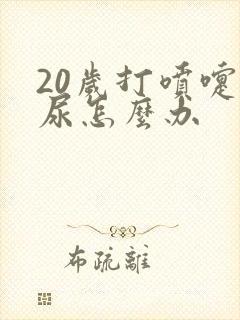 20歲打噴嚏
尿怎麼办
布疏離